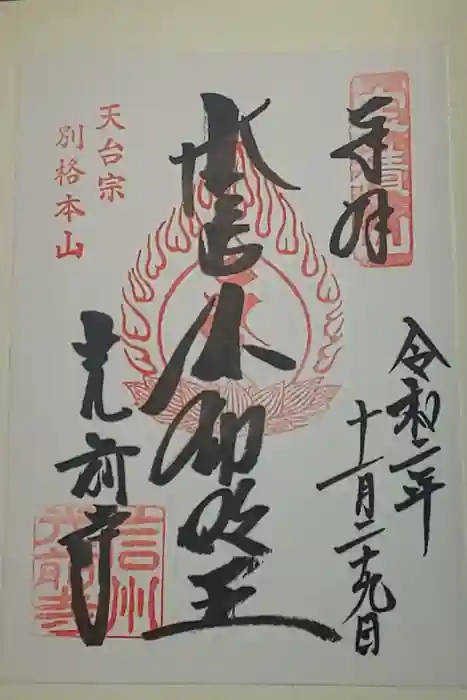 奉拝
宝積山
令和二年
十一月二十九日
本尊不動明王
天台宗
別格本山
光前寺
信州
光前寺